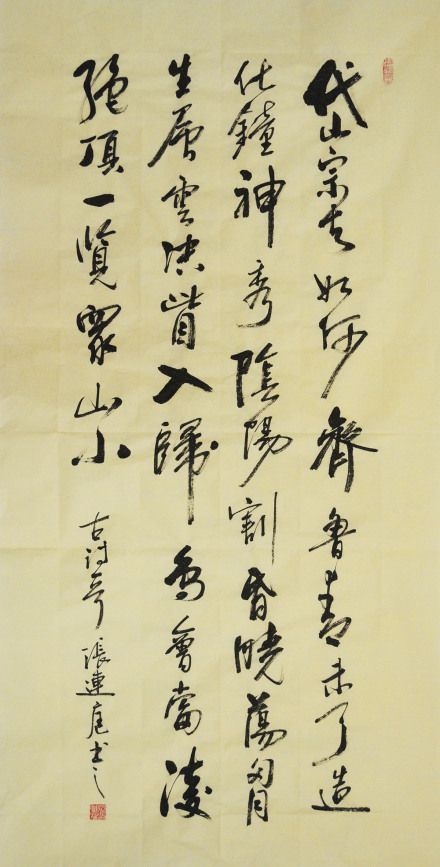 岱宗夫如何齊魯青未了造
化鐘神秀陰陽割昏曉蕩胸
生層雲決眥入歸鳥會當淩
絕頂一覽眾山小
古诗 張連庭书之